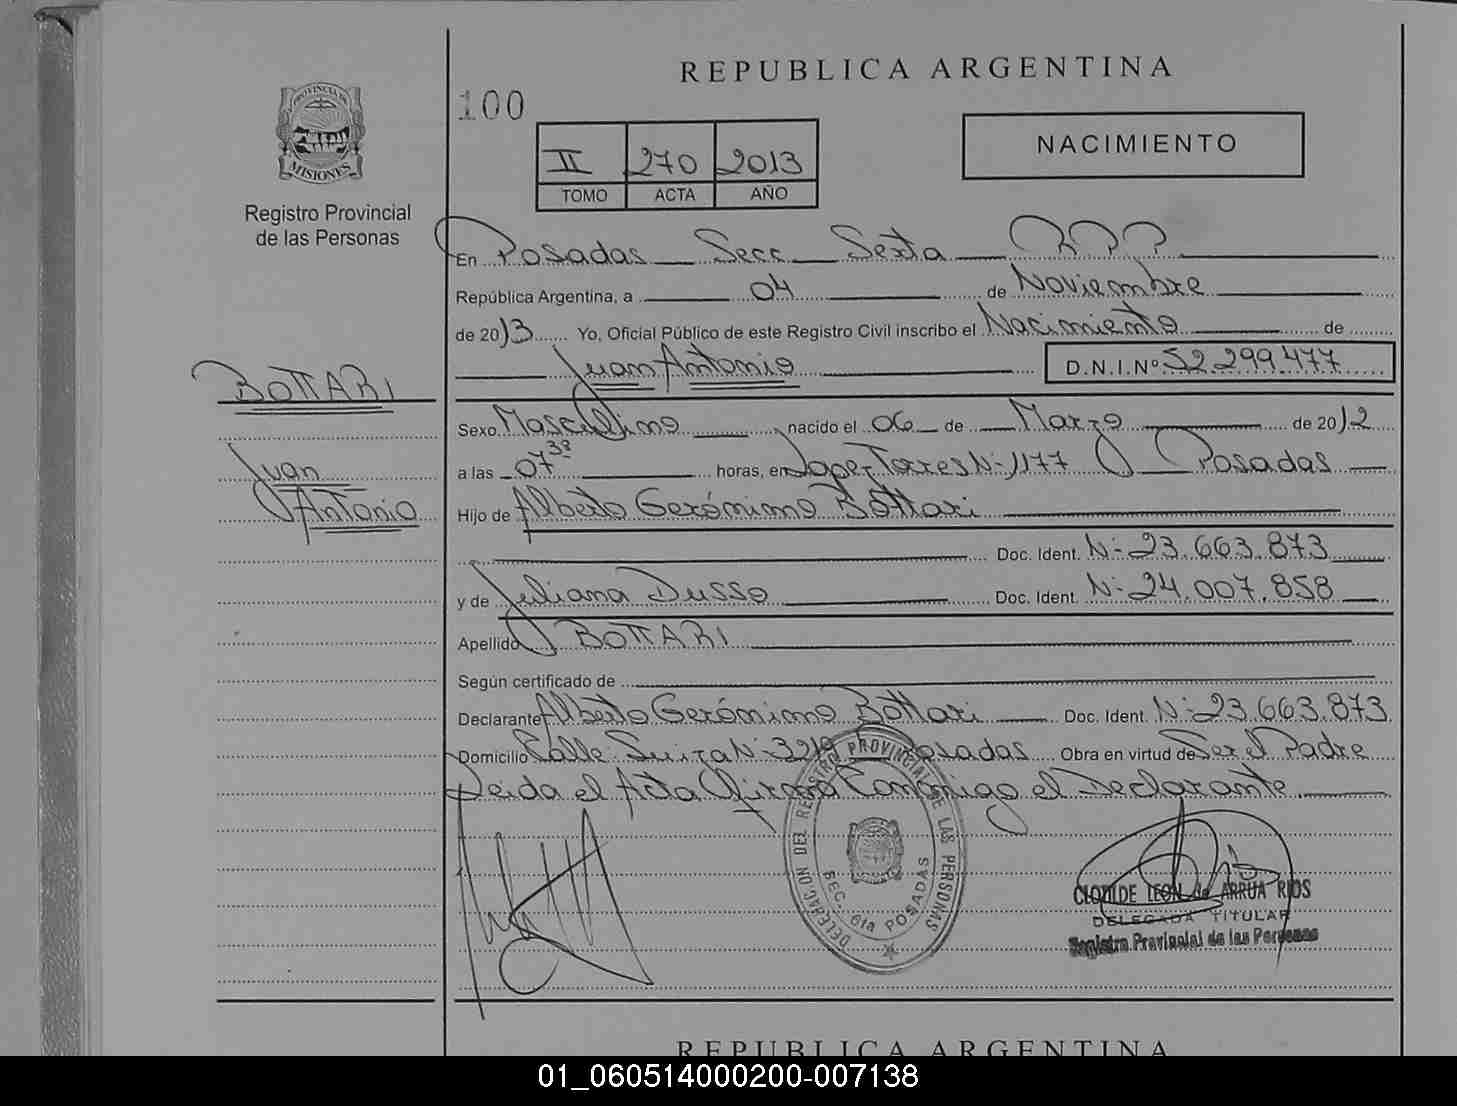 REPUBLICA ARGENTINA
100
II 270 2013
TOMO ACTA AÑO
NACIMIENTO
PROVINCIA DE
MISIONES
Registro Provincial
de las Personas
En Posadas Secc Sexta
República Argentina, a 04 de Noviembre
de 2013 Yo, Oficial Público de este Registro Civil inscribo el Nacimiento de
Juan Antonio D.N.I.Nº 52.299.477
BOTTARI
Juan
Antonio
Sexo Masculino nacido el 06 de Marzo de 2012
a las 07 30 horas, en Lopez Torres N- 1177 Posadas
Hijo de Alberto Gerónimo Bottari
Doc. Ident. N- 23.663.873
y de Juliana Dusso Doc. Ident. N- 24.007.858
Apellido BOTTARI
Según certificado de
Declarante Alberto Gerónimo Bottari Doc. Ident. N- 23.663.873
Domicilio Calle Suiza N- 3219 Posadas Obra en virtud de Ser el Padre
Leida el Acta firma Conmigo el Declarante
DELEGACION DEL REGISTRO PROVINCIAL DE LAS PERSONAS
SEC. 6ta POSADAS
CLOTILDE LEON de ARRUA RIOS
DELEGADA TITULAR
Registro Provincial de las Personas
REPUBLICA ARGENTINA
01_060514000200-007138